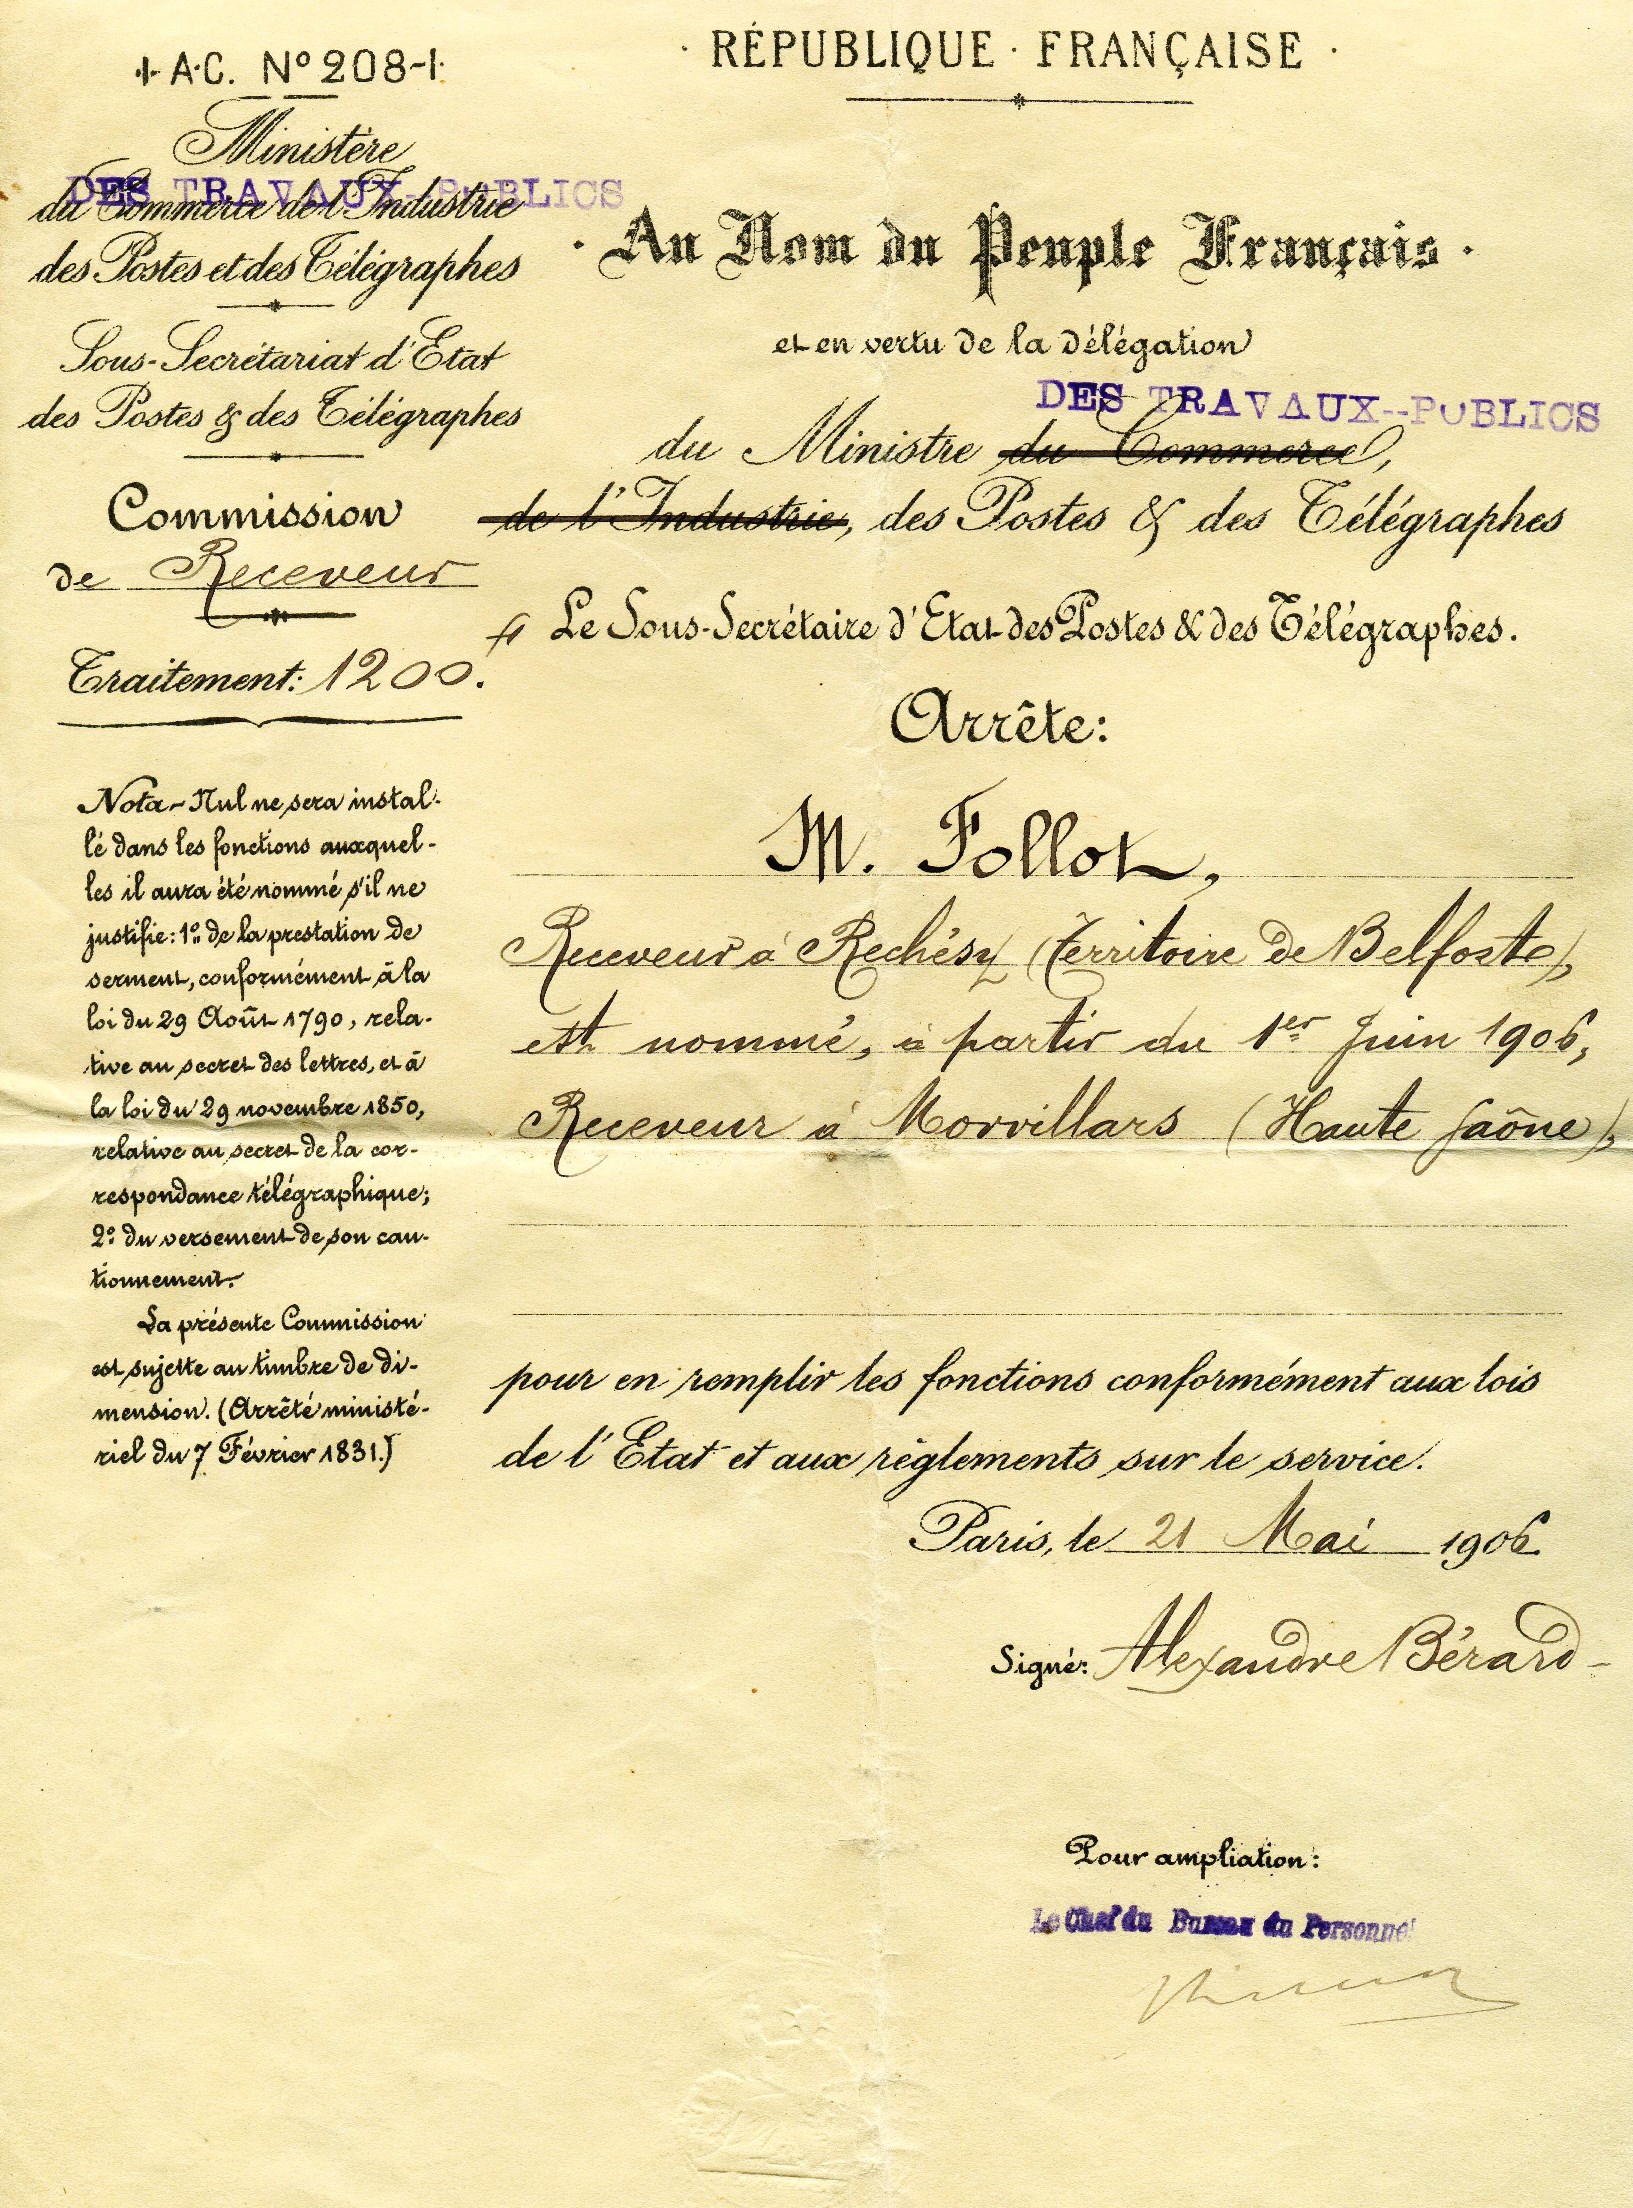 A.C. Nº 208-1.
Ministère
DES TRAVAUX--PUBLICS
du Commerce de l'Industrie
des Postes et des Télégraphes
Sous-Secrétariat d'Etat
des Postes & des Télégraphes
Commission
de Receveur
Traitement: 1200.
Nota - Nul ne sera instal-
lé dans les fonctions auxquel-
les il aura été nommé s'il ne
justifie: 1º de la prestation de
serment, conformément à la
loi du 29 Août 1790, rela-
tive au secret des lettres, et à
la loi du 29 novembre 1850,
relative au secret de la cor-
respondance télégraphique;
2º du versement de son cau-
tionnement.
La présente Commission
est sujette au timbre de di-
mension. (Arrêté ministé-
riel du 7 Février 1831.)
· RÉPUBLIQUE · FRANÇAISE ·
· Au Nom du Peuple Français ·
et en vertu de la délégation
DES TRAVAUX--PUBLICS
du Ministre du Commerce,
de l'Industrie, des Postes & des Télégraphes
Le Sous-Secrétaire d'Etat des Postes & des Télégraphes.
Arrête:
M. Follot,
Receveur à Rechésy (Territoire de Belfort),
est nommé, à partir du 1er Juin 1906,
Receveur à Morvillars (Haute Saône),
pour en remplir les fonctions conformément aux lois
de l'Etat et aux règlements sur le service.
Paris, le 21 Mai 1906
Signé: Alexandre Bérard
Pour ampliation:
Le Chef du Bureau du Personnel